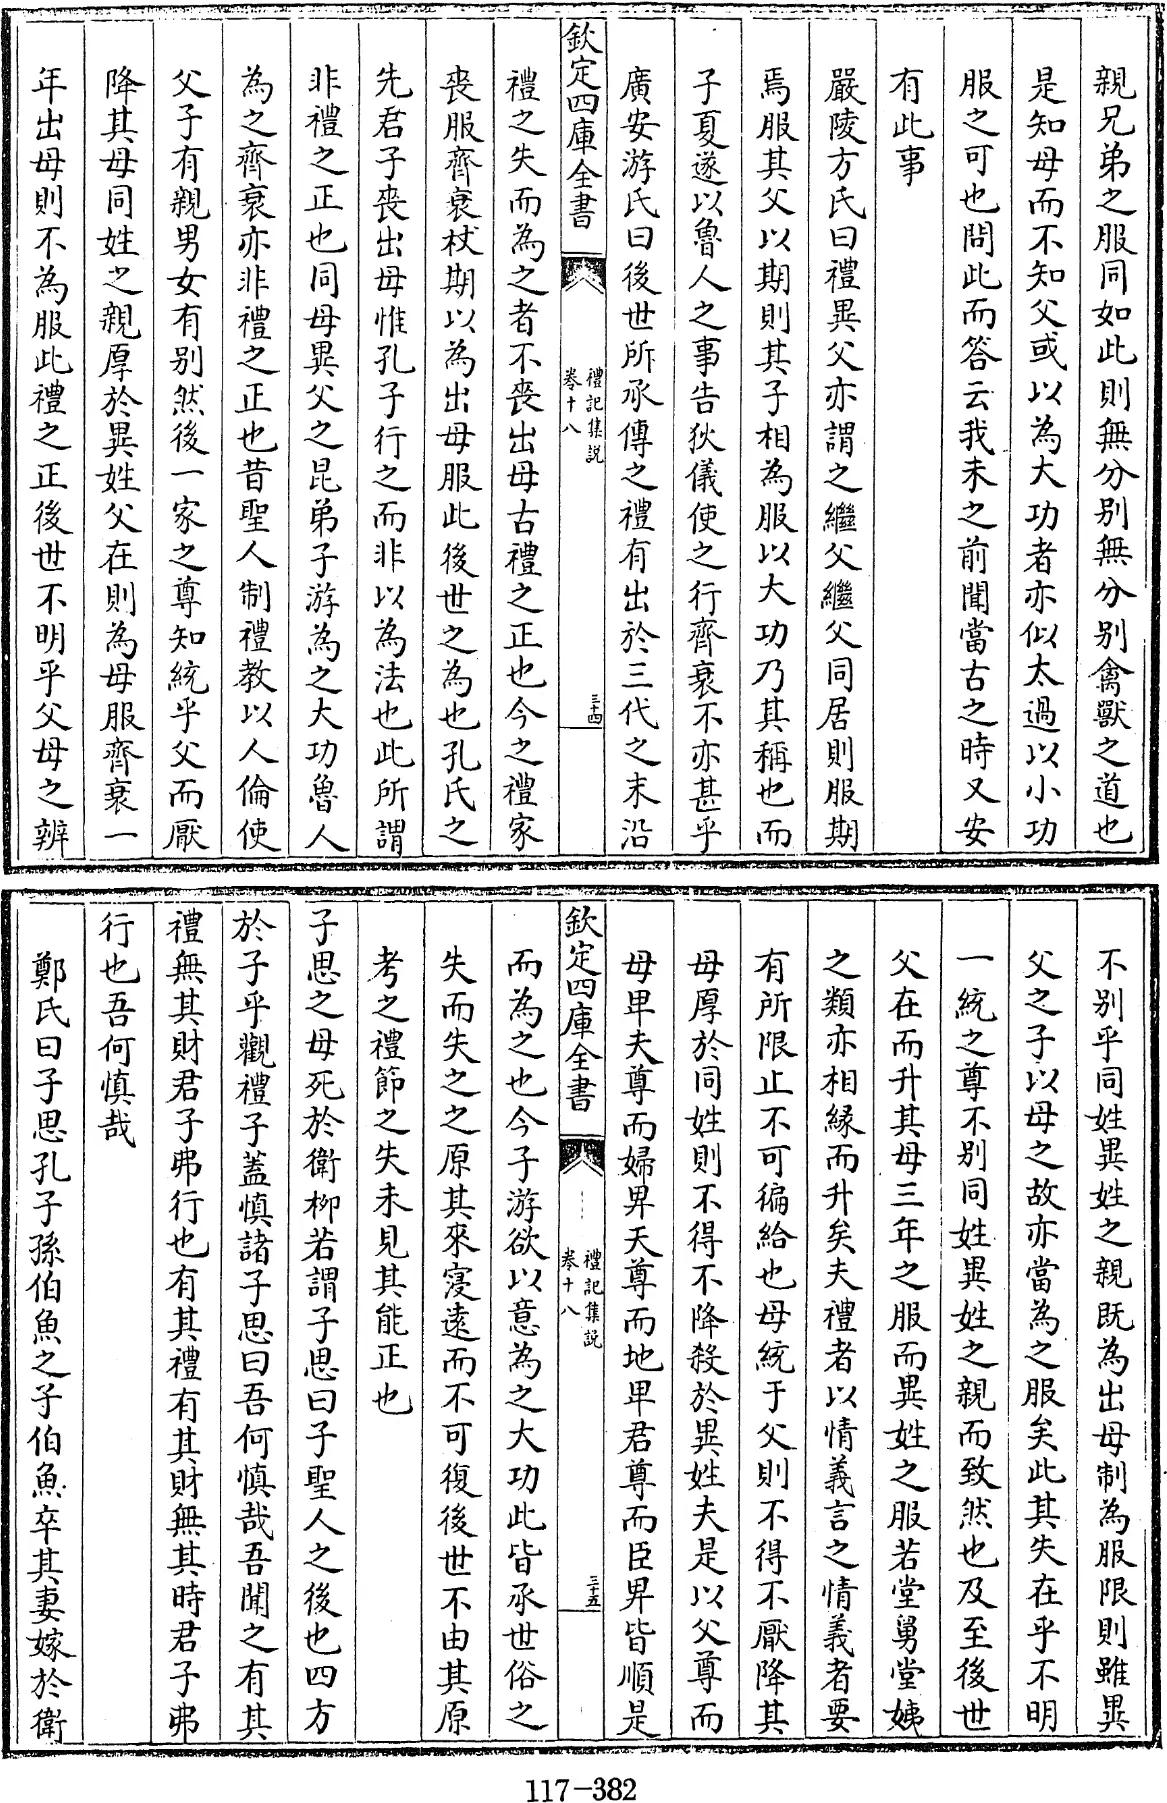 親兄弟之服同如此則無分別無分別禽獸之道也
是知母而不知父或以為大功者亦似太過以小功
服之可也問此而答云我未之前聞當古之時又安
有此事
嚴陵方氏曰禮異父亦謂之繼父繼父同居則服期
焉服其父以期則其子相為服以大功乃其稱也而
子夏遂以魯人之事告狄儀使之行齊衰不亦甚乎
廣安游氏曰後世所承傳之禮有出於三代之末沿
欽定四庫全書
禮記集說
卷十八
三十四
禮之失而為之者不喪出母古禮之正也今之禮家
喪服齊衰杖期以為出母服此後世之為也孔氏之
先君子喪出母惟孔子行之而非以為法也此所謂
非禮之正也同母異父之昆弟子游為之大功魯人
為之齊衰亦非禮之正也昔聖人制禮教以人倫使
父子有親男女有别然後一家之尊知統乎父而厭
降其母同姓之親厚於異姓父在則為母服齊衰一
年出母則不為服此禮之正後世不明乎父母之辨
不别乎同姓異姓之親既為出母制為服限則雖異
父之子以母之故亦當為之服矣此其失在乎不明
一統之尊不别同姓異姓之親而致然也及至後世
父在而升其母三年之服而異姓之服若堂舅堂姨
之類亦相緣而升矣夫禮者以情義言之情義者要
有所限止不可徧給也母統于父則不得不厭降其
母厚於同姓則不得不降殺於異姓夫是以父尊而
母卑夫尊而婦卑天尊而地卑君尊而臣卑皆順是
欽定四庫全書
禮記集說
卷十八
三十五
而為之也今子游欲以意為之大功此皆承世俗之
失而失之之原其來寖遠而不可復後世不由其原
考之禮節之失未見其能正也
子思之母死於衛柳若謂子思曰子聖人之後也四方
於子乎觀禮子蓋慎諸子思曰吾何慎哉吾聞之有其
禮無其財君子弗行也有其禮有其財無其時君子弗
行也吾何慎哉
鄭氏曰子思孔子孫伯魚之子伯魚卒其妻嫁於衛
117-382